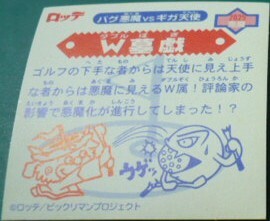 ロッテ
バグ悪魔vsギガ天使
W悪戯
ゴルフの下手な者からは天使に見え上手
な者からは悪魔に見えるW属!評論家の
影響で悪魔化が進行してしまった!?
ウゲッ
©ロッテ/ビックリマンプロジェクト